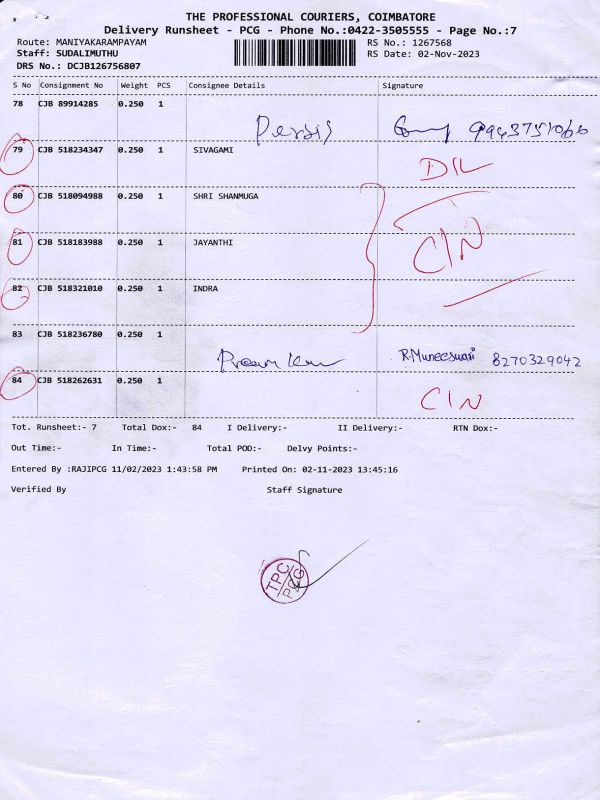 THE PROFESSIONAL COURIERS, COIMBATORE
Delivery Runsheet - PCG - Phone No.:0422-3505555 - Page No.:7
Route: MANIYAKARAMPAYAM RS No.: 1267568
Staff: SUDALIMUTHU RS Date: 02-Nov-2023
DRS No.: DCJB126756807
S No Consignment No Weight PCS Consignee Details Signature
78 CJB 89914285 0.250 1
79 CJB 518234347 0.250 1 SIVAGAMI
D/L
80 CJB 518094988 0.250 1 SHRI SHANMUGA
81 CJB 518183988 0.250 1 JAYANTHI
C/N
82 CJB 518321010 0.250 1 INDRA
83 CJB 518236780 0.250 1
R.Muneeswari 8270329042
84 CJB 518262631 0.250 1
C/N
Tot. Runsheet:- 7 Total Dox:- 84 I Delivery:- II Delivery:- RTN Dox:-
Out Time:- In Time:- Total POD:- Delvy Points:-
Entered By :RAJIPCG 11/02/2023 1:43:58 PM Printed On: 02-11-2023 13:45:16
Verified By Staff Signature
TPC
PCG